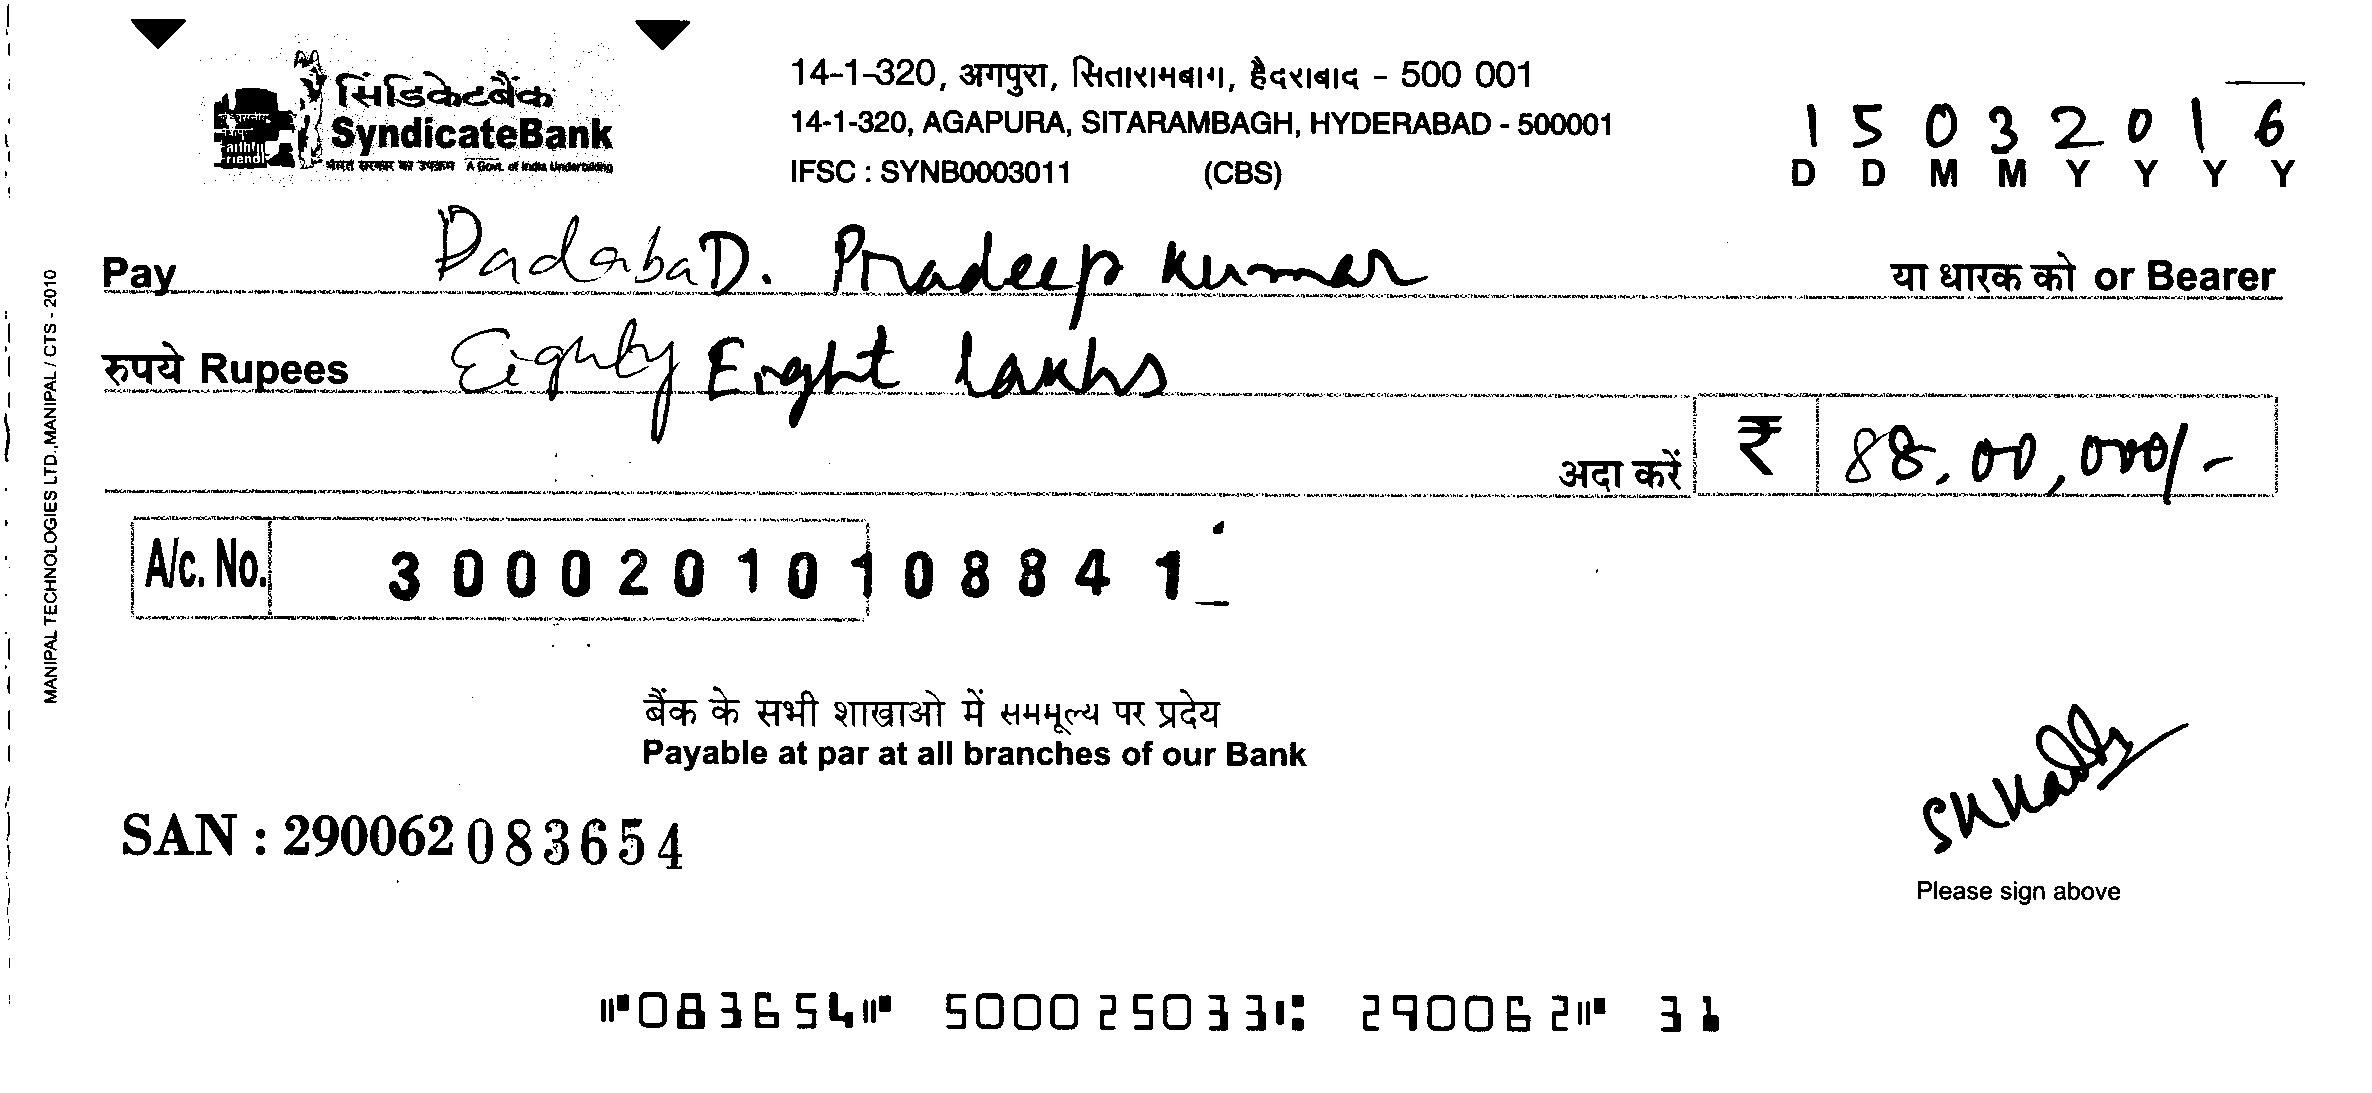 सिंडिकेटबैंक
SyndicateBank
भारत सरकार का उपक्रम A Govt. of India Undertaking
14-1-320, अगपुरा, सितारामबाग, हैदराबाद - 500 001
14-1-320, AGAPURA, SITARAMBAGH, HYDERABAD - 500001
IFSC : SYNB0003011 (CBS)
1 5 0 3 2 0 1 6
D D M M Y Y Y Y
Pay DadabaD. Pradeep Kumar या धारक को or Bearer
रुपये Rupees Eighty Eight Lakhs
अदा करें ₹ 88,00,000/-
A/c. No. 30002010108841
बैंक के सभी शाखाओ में सममूल्य पर प्रदेय
Payable at par at all branches of our Bank
SAN : 290062 083654
Please sign above
⑈083654⑈ 500025033⑆ 290062⑈ 31
MANIPAL TECHNOLOGIES LTD.,MANIPAL / CTS - 2010